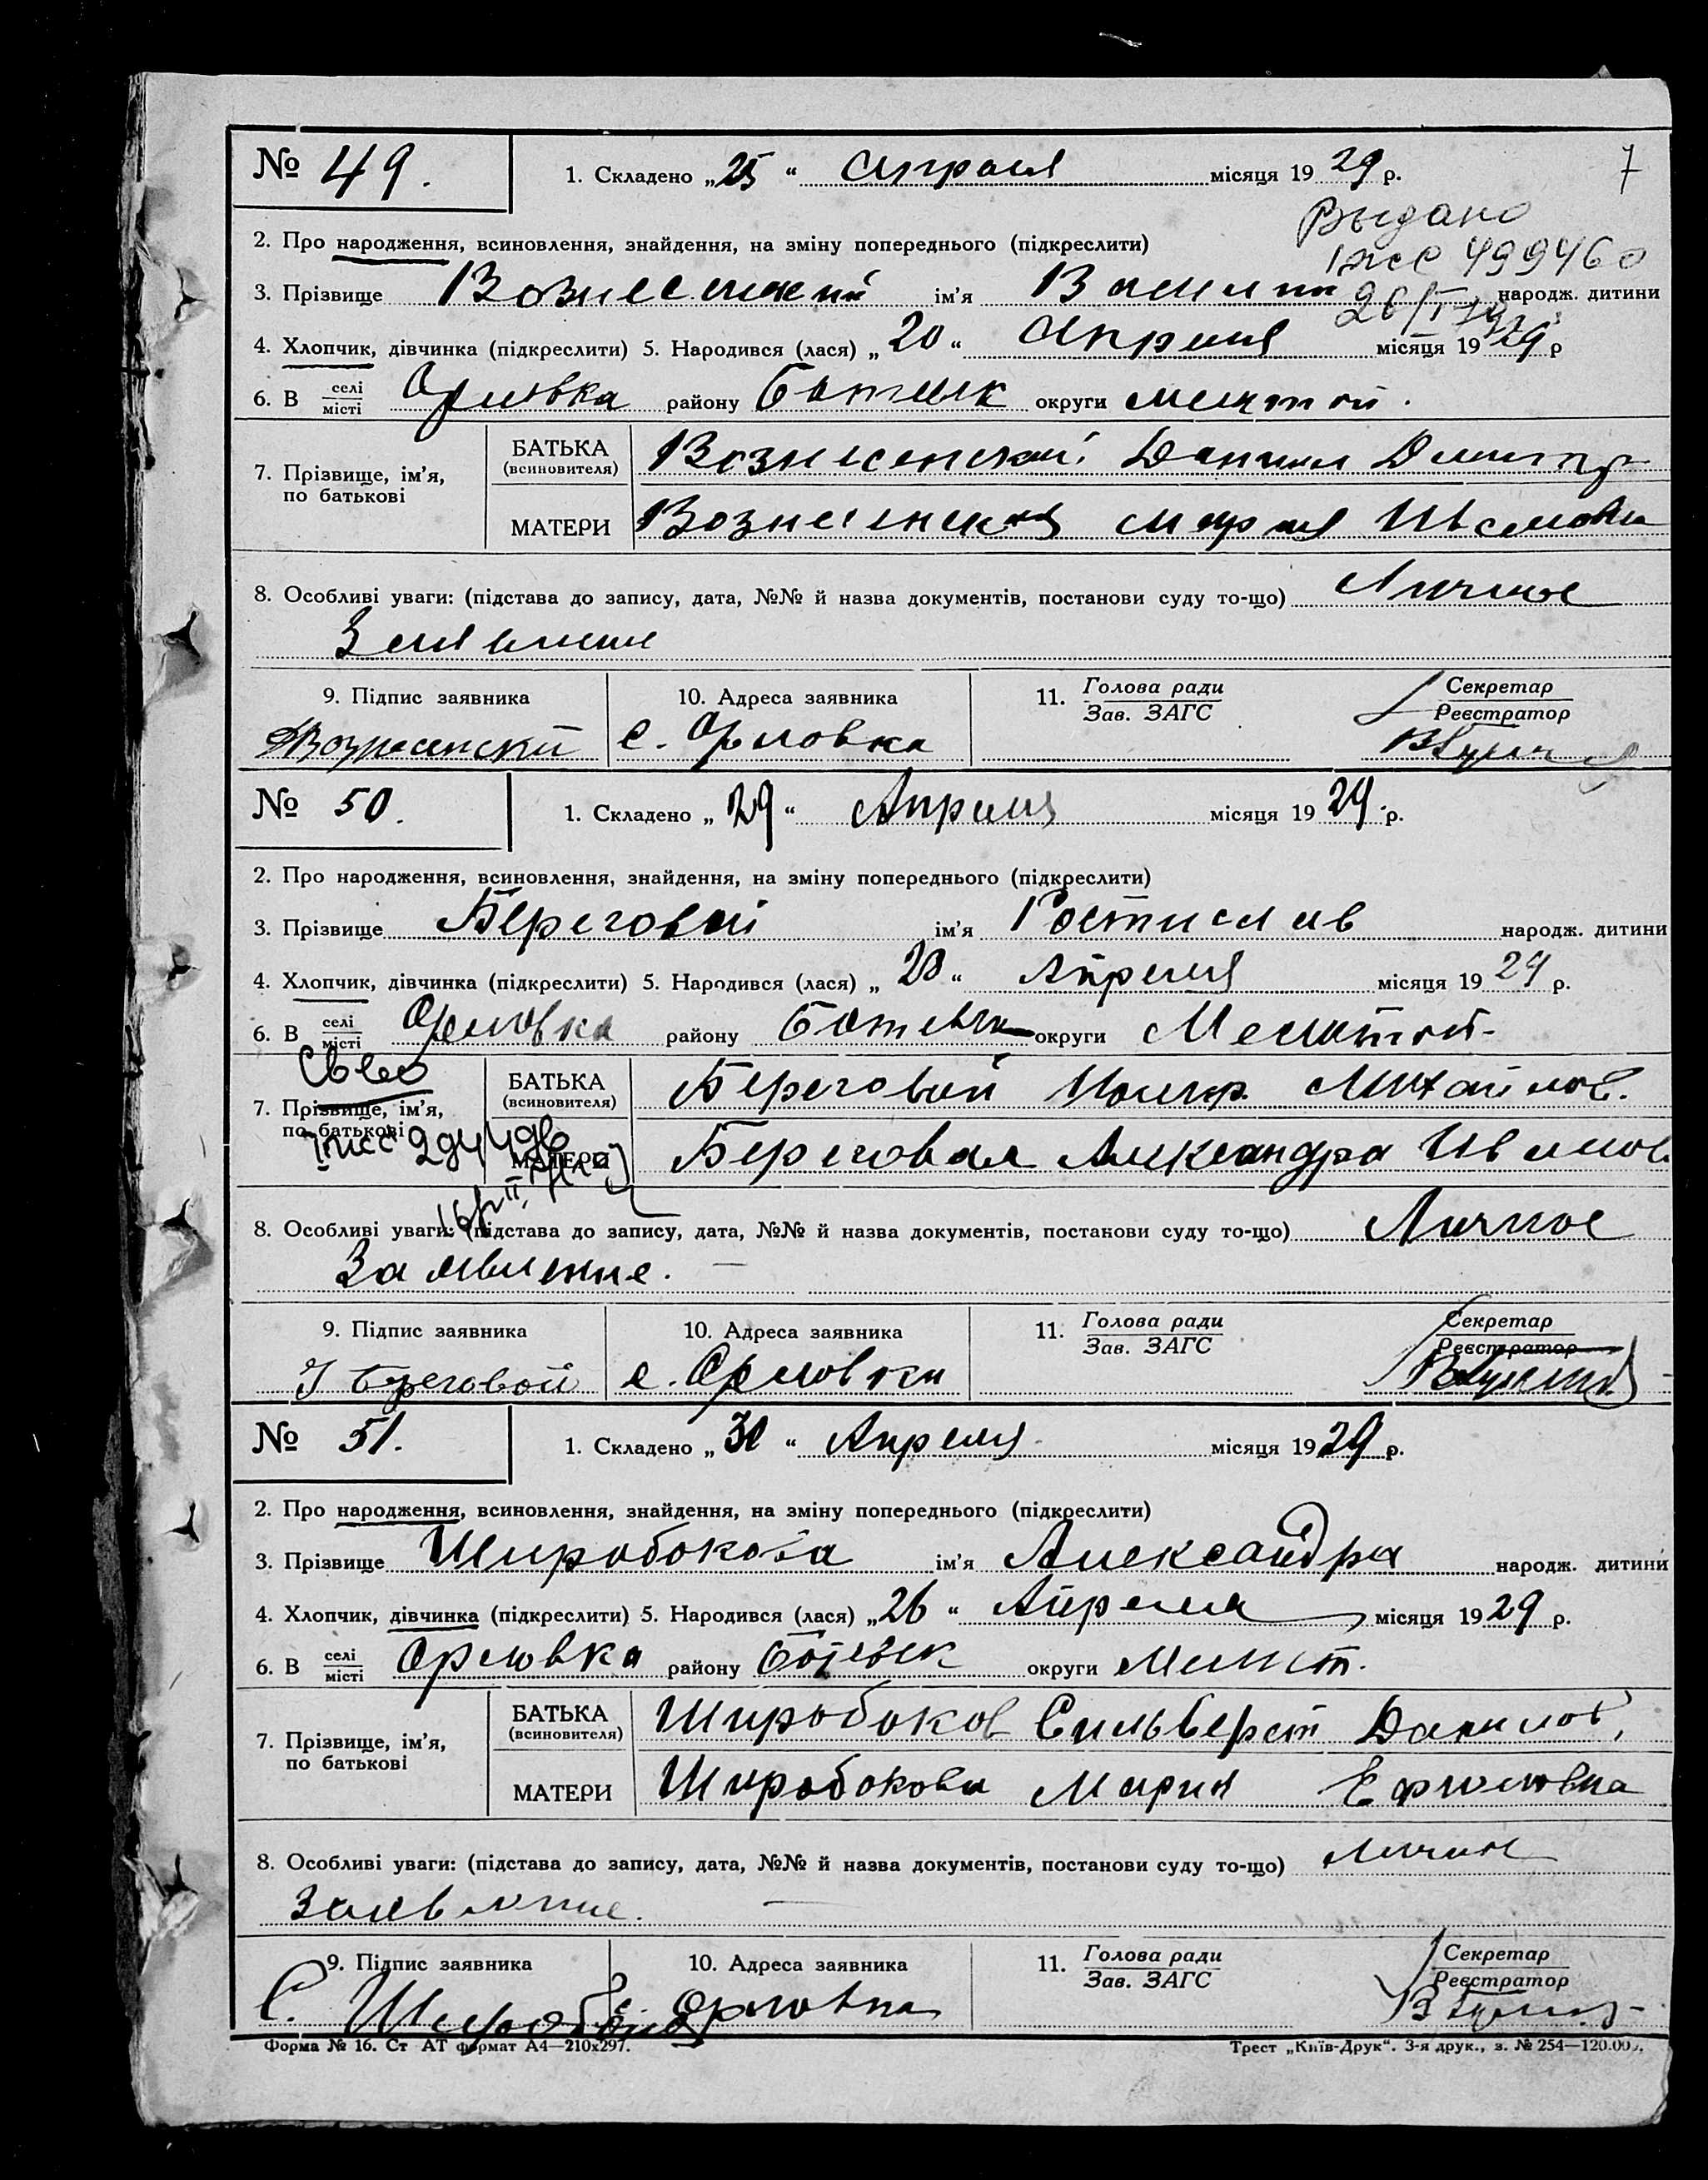 7
№ 49. 1. Складено „25“ Апреля місяця 1929 р.
Выдано
2. Про народження, всиновлення, знайдення, на зміну попереднього (підкреслити)
499460
3. Прізвище Вознесенский ім'я Василий народж. дитини
4. Хлопчик, дівчинка (підкреслити) 5. Народився (лася) „20“ Апреля місяця 1929 р
6. В селі місті Орловка району Ботиевск округи Мелитой.
7. Прізвище, ім'я, по батькові
БАТЬКА (всиновителя) Вознесенский Даниил Дмитр
МАТЕРИ Вознесенская Мария
8. Особливі уваги: (підстава до запису, дата, №№ й назва документів, постанови суду то-що) Личное
Заявление
9. Підпис заявника 10. Адреса заявника 11. Голова ради Зав. ЗАГС Секретар Реєстратор
Вознесенский с. Орловка
№ 50. 1. Складено „29“ Апреля місяця 1929 р.
2. Про народження, всиновлення, знайдення, на зміну попереднього (підкреслити)
3. Прізвище Береговой ім'я Ростислав народж. дитини
4. Хлопчик, дівчинка (підкреслити) 5. Народився (лася) „28“ Апреля місяця 1929 р.
6. В селі місті Орловка району Ботиевск округи Мелитой.
7. Прізвище, ім'я, по батькові
БАТЬКА (всиновителя) Береговой Михайлов.
МАТЕРИ Береговая Александра Иванов
8. Особливі уваги: (підстава до запису, дата, №№ й назва документів, постанови суду то-що) Личное
Заявление.
9. Підпис заявника 10. Адреса заявника 11. Голова ради Зав. ЗАГС Секретар Реєстратор
Береговой с. Орловка
№ 51. 1. Складено „30“ Апреля місяця 1929 р.
2. Про народження, всиновлення, знайдення, на зміну попереднього (підкреслити)
3. Прізвище Широбокова ім'я Александра народж. дитини
4. Хлопчик, дівчинка (підкреслити) 5. Народився (лася) „26“ Апреля місяця 1929 р.
6. В селі місті Орловка району Ботиевск округи Мелит.
7. Прізвище, ім'я, по батькові
БАТЬКА (всиновителя) Широбоков Сильверст Данилов,
МАТЕРИ Широбокова Мария Ефимовна
8. Особливі уваги: (підстава до запису, дата, №№ й назва документів, постанови суду то-що) Личное
Заявление.
9. Підпис заявника 10. Адреса заявника 11. Голова ради Зав. ЗАГС Секретар Реєстратор
С. Широбоков с. Орловка
Форма № 16. Ст АТ формат А4—210х297. Трест „Київ-Друк“. 3-я друк., з. № 254—120.000.